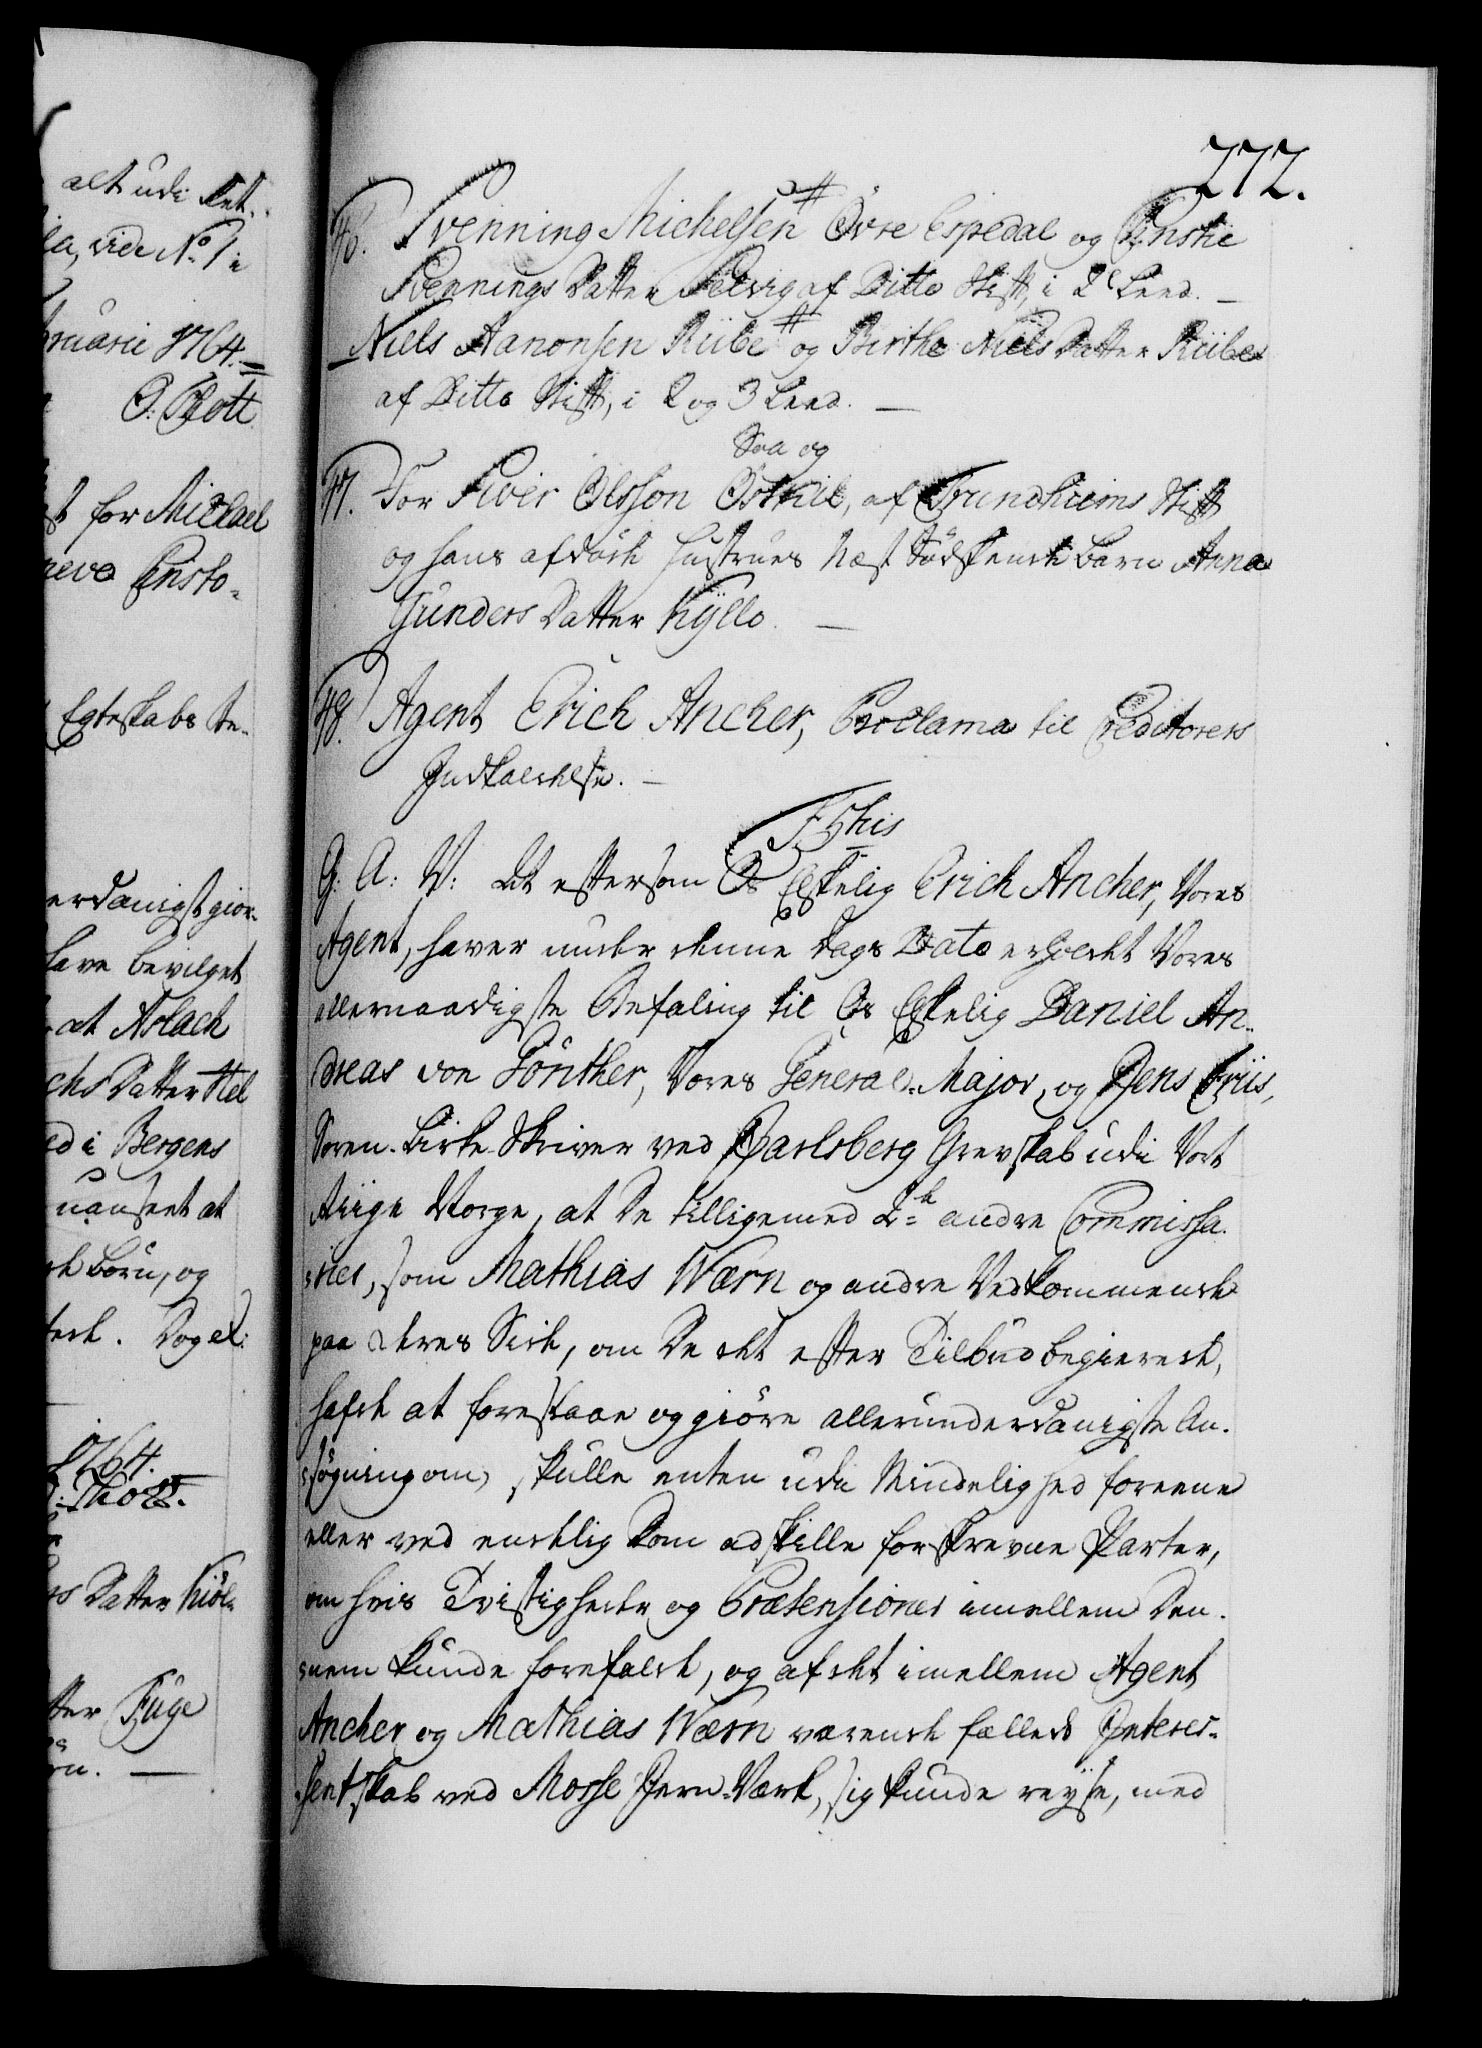 alt udi
la, vide No. 1 i
bruarii 1764.
O: Thott
for Michael
Egteskabs Be-
erdanigst gior-
have bevilget
at Aslach
chs Datter Hel
ed i Bergens
uanseet at
Børn, og
Dog el:
1764.
O: Thott.
Datter Kiöl-
tter Fuge
272.
46. Svenning Michelsen Øvre Espedal og Einstie
Svennings Datter Selvig af Ditto Stift, i 2d Leed. —
Niels Aanonsen Rübe og Birthe Niels Datter Rübe
af Ditto Stift, i 2 og 3 Leed. —
Søa og
47. For Siver Olsson Østkil, af Trundhiems Stift
og hans afdøde Hustrues Næst Sødskende barn Anna
Gunders Datter Kyllo. —
48. Agent Erich Ancher, Proclama til Creditorers
Indkaldelse. —
G: A: V: At eftersom Os Elskelig Erich Ancher, Vores
Agent, haver under denne Dags Dato erholdet Vores
allernaadigste Befaling til Os Elskelig Daniel An-
dreas von Günther, Vores General-Major, og Jens Friis,
Soren-birke-Skriver ved Jarlsberg Grevskab udi Vort
Riige Norge, at De tilligemed 2de andre Commissa-
rier, som Mathias Wærn og andre Vedkommende
paa deres Side, om De det efter Tilbud begierede,
hafde at foreslaae og giøre allerunderdanigste An-
søgning om, skulle enten udi Mindelighed foreene
eller ved endelig Dom adskille forskrevne Parter,
om hvis Tvistigheder og Prætensioner imellem Den-
nem kunde forefalde, og af det imellem Agent
Ancher og Mathias Wærn værende fælleds Interes-
sentskab ved Mosse Jern-Værk, sig kunde reyse, med